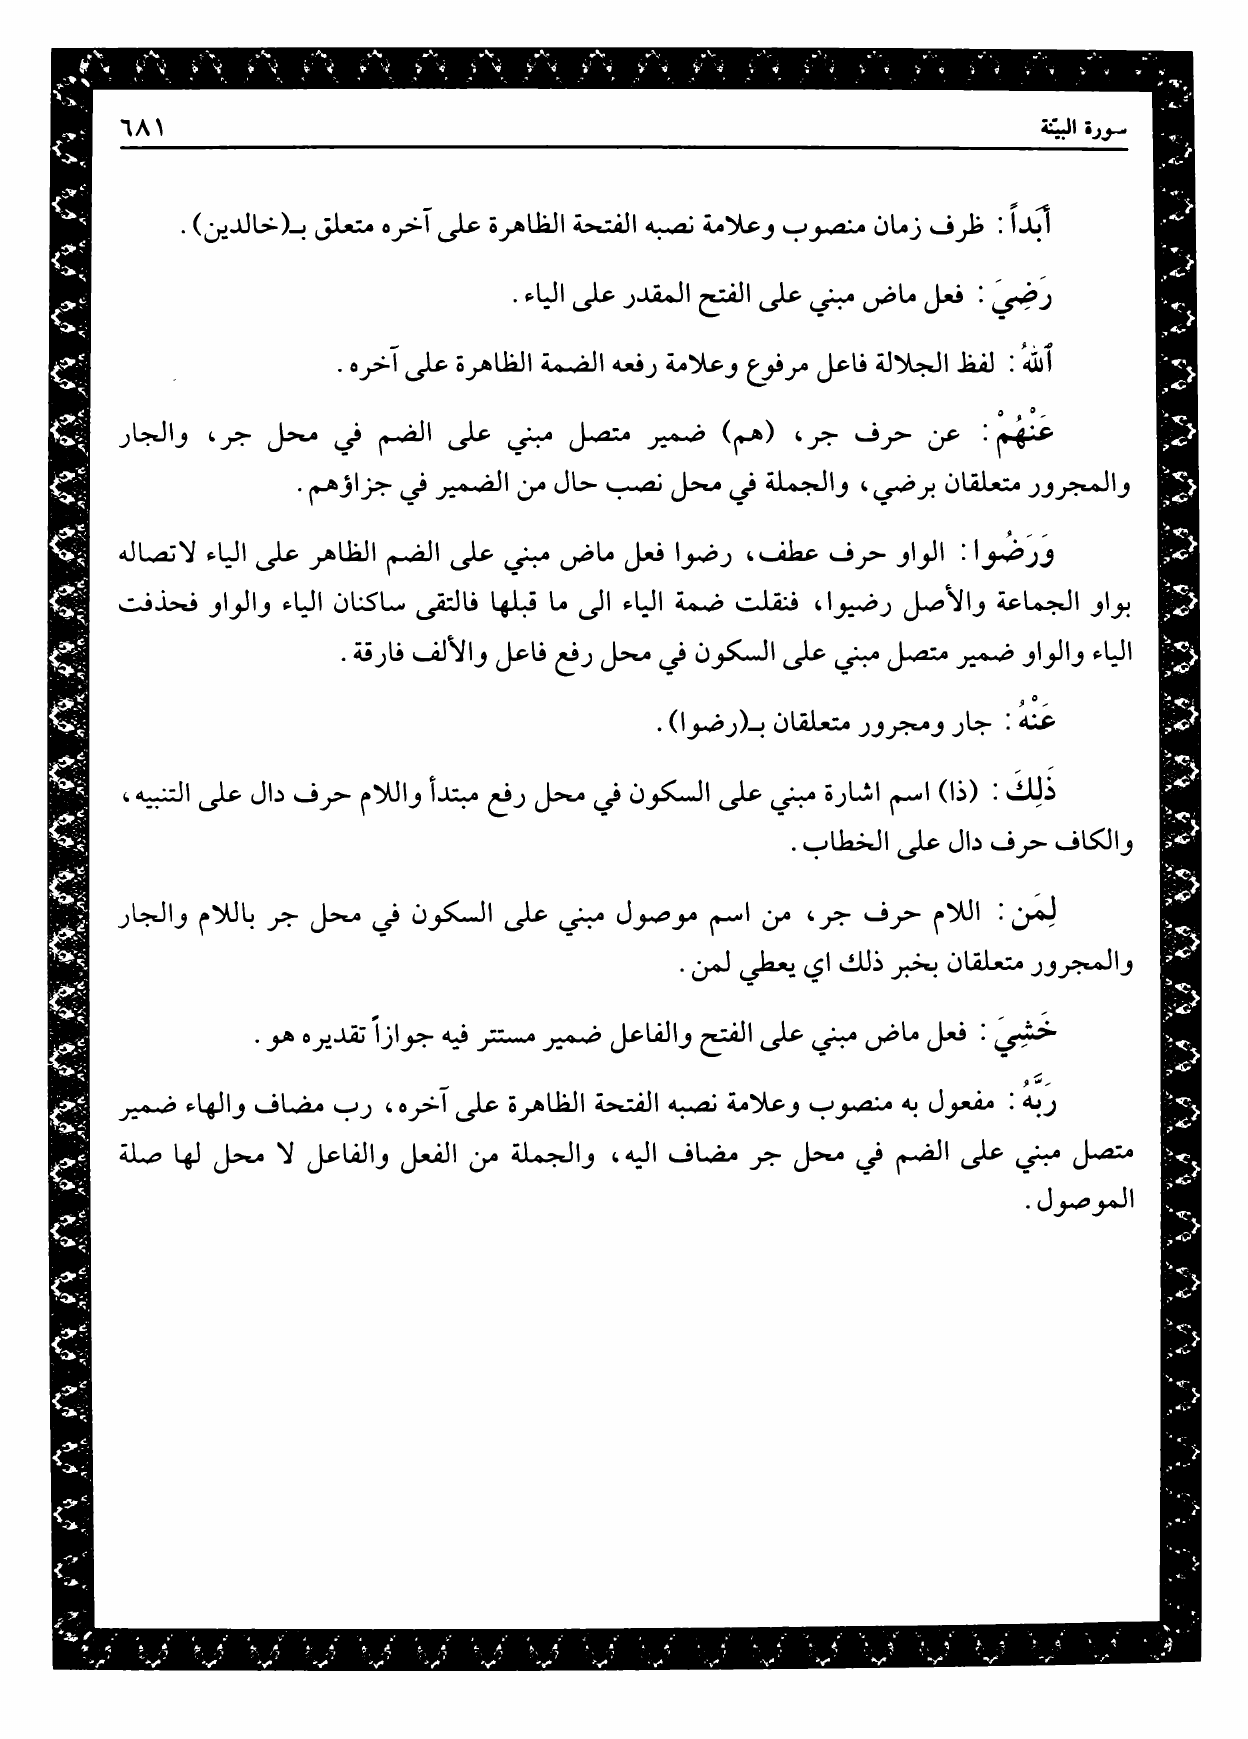 سورة البيّنة
٦٨١
أَبَداً : ظرف زمان منصوب وعلامة نصبه الفتحة الظاهرة على آخره متعلق بـ(خالدين) .
رَضِيَ : فعل ماض مبني على الفتح المقدر على الياء .
ٱللهُ : لفظ الجلالة فاعل مرفوع وعلامة رفعه الضمة الظاهرة على آخره .
عَنْهُمْ : عن حرف جر، (هم) ضمير متصل مبني على الضم في محل جر، والجار
والمجرور متعلقان برضي، والجملة في محل نصب حال من الضمير في جزاؤهم .
وَرَضُوا : الواو حرف عطف، رضوا فعل ماض مبني على الضم الظاهر على الياء لاتصاله
بواو الجماعة والأصل رضيوا، فنقلت ضمة الياء الى ما قبلها فالتقى ساكنان الياء والواو فحذفت
الياء والواو ضمير متصل مبني على السكون في محل رفع فاعل والألف فارقة .
عَنْهُ : جار ومجرور متعلقان بـ(رضوا) .
ذَلِكَ : (ذا) اسم اشارة مبني على السكون في محل رفع مبتدأ واللام حرف دال على التنبيه،
والكاف حرف دال على الخطاب .
لِمَن : اللام حرف جر، من اسم موصول مبني على السكون في محل جر باللام والجار
والمجرور متعلقان بخبر ذلك اي يعطي لمن .
خَشِيَ : فعل ماض مبني على الفتح والفاعل ضمير مستتر فيه جوازاً تقديره هو .
رَبَّهُ : مفعول به منصوب وعلامة نصبه الفتحة الظاهرة على آخره، رب مضاف والهاء ضمير
متصل مبني على الضم في محل جر مضاف اليه، والجملة من الفعل والفاعل لا محل لها صلة
الموصول .